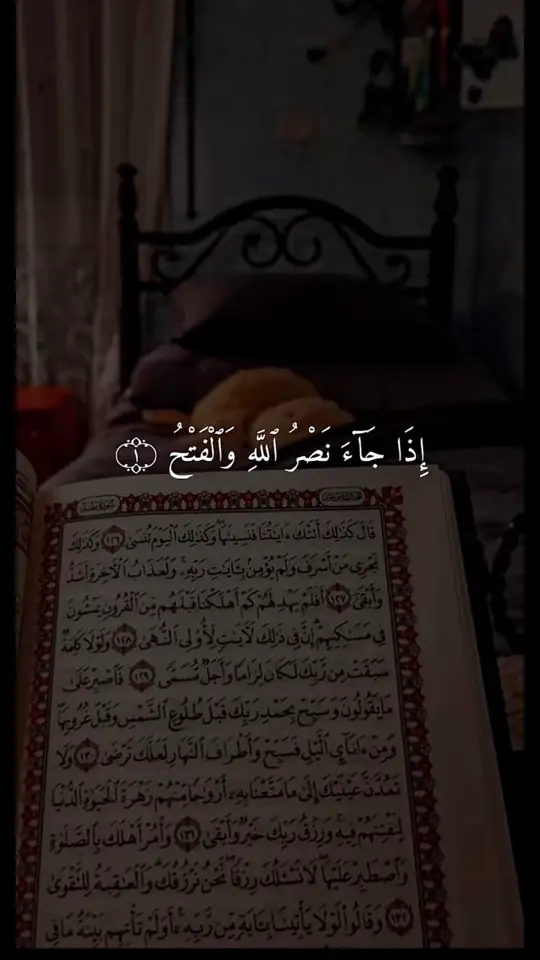 إِذَا جَآءَ نَصْرُ ٱللَّهِ وَٱلْفَتْحُ ١
قَالَ كَذَٰلِكَ أَتَتْكَ ءَايَٰتُنَا فَنَسِيتَهَا وَكَذَٰلِكَ ٱلْيَوْمَ تُنسَىٰ ١٢٦ وَكَذَٰلِكَ
نَجْزِى مَنْ أَسْرَفَ وَلَمْ يُؤْمِنۢ بِـَٔايَٰتِ رَبِّهِۦ وَلَعَذَابُ ٱلْـَٔاخِرَةِ أَشَدُّ
وَأَبْقَىٰٓ ١٢٧ أَفَلَمْ يَهْدِ لَهُمْ كَمْ أَهْلَكْنَا قَبْلَهُم مِّنَ ٱلْقُرُونِ يَمْشُونَ
فِى مَسَٰكِنِهِمْ إِنَّ فِى ذَٰلِكَ لَـَٔايَٰتٍ لِّأُو۟لِى ٱلنُّهَىٰ ١٢٨ وَلَوْلَا كَلِمَةٌ
سَبَقَتْ مِن رَّبِّكَ لَكَانَ لِزَامًا وَأَجَلٌ مُّسَمًّى ١٢٩ فَٱصْبِرْ عَلَىٰ
مَا يَقُولُونَ وَسَبِّحْ بِحَمْدِ رَبِّكَ قَبْلَ طُلُوعِ ٱلشَّمْسِ وَقَبْلَ غُرُوبِهَا
وَمِنْ ءَانَآئِ ٱلَّيْلِ فَسَبِّحْ وَأَطْرَافَ ٱلنَّهَارِ لَعَلَّكَ تَرْضَىٰ ١٣٠ وَلَا
تَمُدَّنَّ عَيْنَيْكَ إِلَىٰ مَا مَتَّعْنَا بِهِۦٓ أَزْوَٰجًا مِّنْهُمْ زَهْرَةَ ٱلْحَيَوٰةِ ٱلدُّنْيَا
لِنَفْتِنَهُمْ فِيهِ وَرِزْقُ رَبِّكَ خَيْرٌ وَأَبْقَىٰ ١٣١ وَأْمُرْ أَهْلَكَ بِٱلصَّلَوٰةِ
وَٱصْطَبِرْ عَلَيْهَا لَا نَسْـَٔلُكَ رِزْقًا نَّحْنُ نَرْزُقُكَ وَٱلْعَٰقِبَةُ لِلتَّقْوَىٰ
١٣٢ وَقَالُوا۟ لَوْلَا يَأْتِينَا بِـَٔايَةٍ مِّن رَّبِّهِۦٓ أَوَلَمْ تَأْتِهِم بَيِّنَةُ مَا فِى